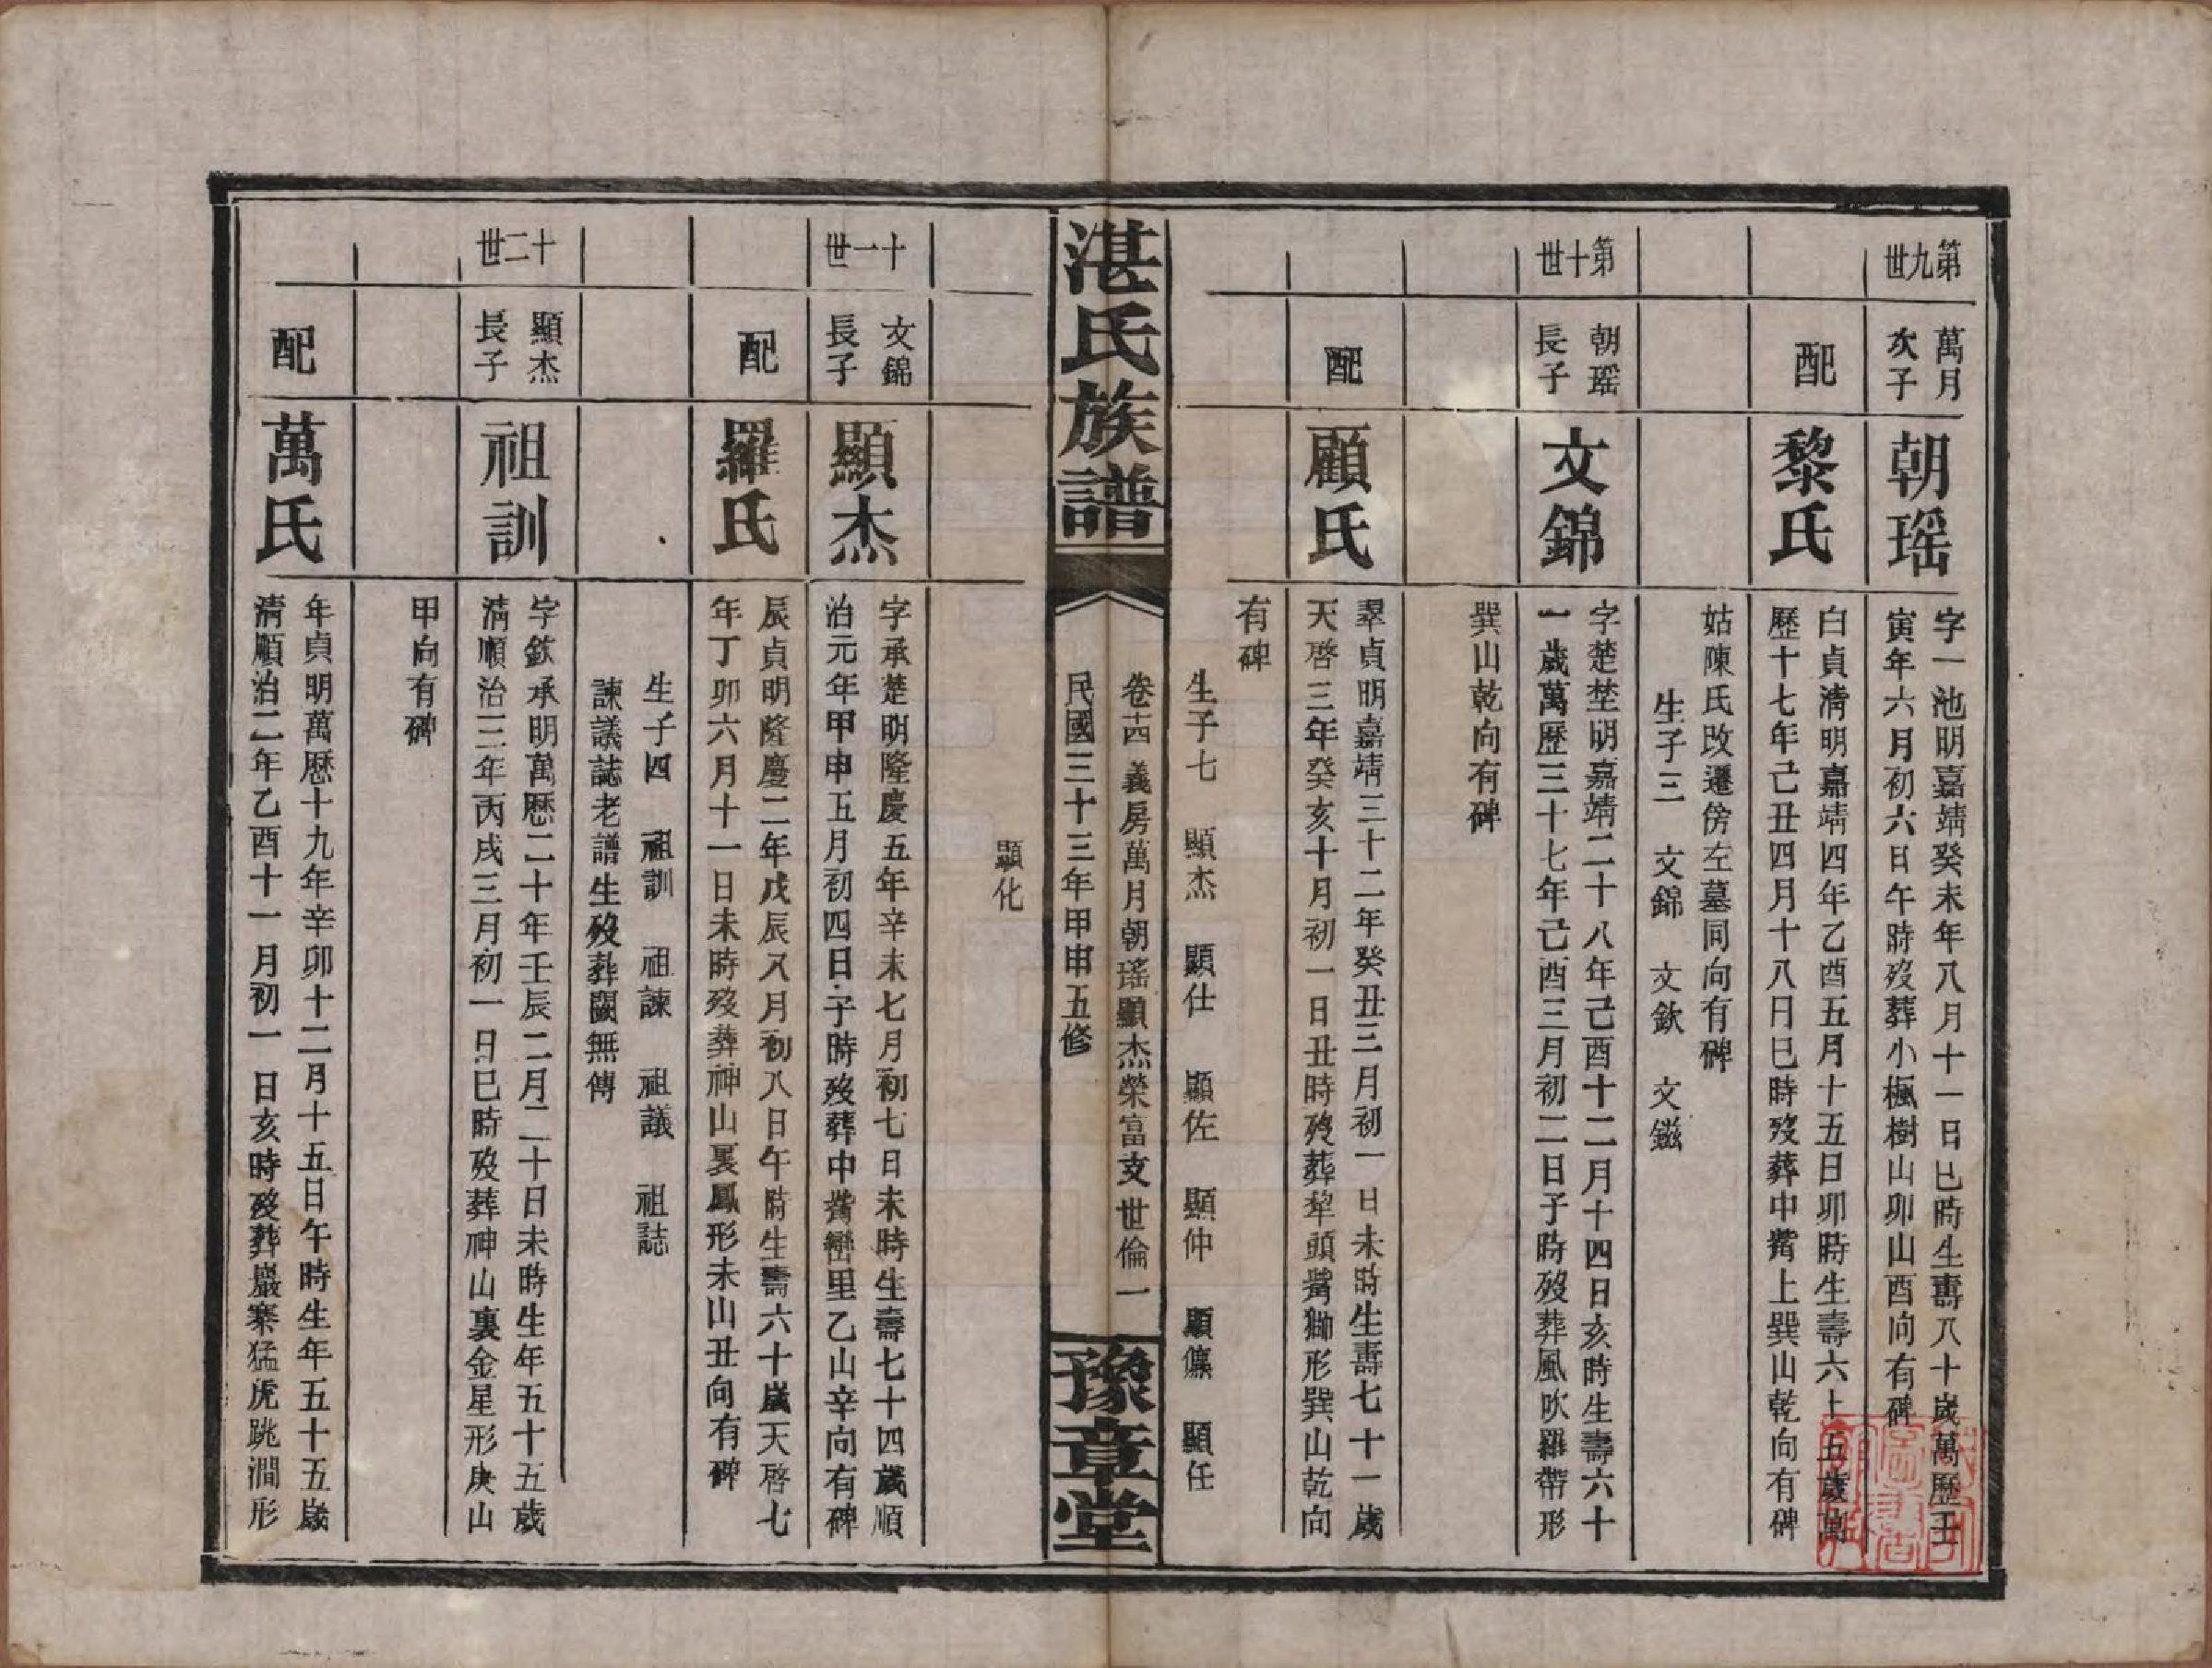 第九世
萬月
次子
朝瑶
字一池明嘉靖癸未年八月十一日巳時生壽八十歲萬歷壬
寅年六月初六日午時歿葬小楓樹山卯山酉向有碑
配
黎氏
白貞清明嘉靖四年乙酉五月十五日卯時生壽六十五歲萬
歷十七年己丑四月十八日巳時歿葬中嘴上巽山乾向有碑
姑陳氏改遷傍左墓同向有碑
生子三 文錦 文欽 文鎡
第十世
朝瑶
長子
文錦
字楚埜明嘉靖二十八年己酉十二月十四日亥時生壽六十
一歲萬歷三十七年己酉三月初二日子時歿葬風吹羅帶形
巽山乾向有碑
配
顧氏
翠貞明嘉靖三十二年癸丑三月初一日未時生壽七十一歲
天啓三年癸亥十月初一日丑時歿葬犂頭嘴獅形巽山乾向
有碑
生子七 顯杰 顯仕 顯佐 顯仲 顯儦 顯任
湛氏族譜
卷十四 義房萬月朝瑤顯杰榮富支世倫一
民國三十三年甲申五修
豫章堂
顯化
十一世
文錦
長子
顯杰
字承楚明隆慶五年辛未七月初七日未時生壽七十四歲順
治元年甲申五月初四日子時歿葬中嘴巒里乙山辛向有碑
配
羅氏
辰貞明隆慶二年戊辰八月初八日午時生壽六十歲天啓七
年丁卯六月十一日未時歿葬神山裏鳳形未山丑向有碑
生子四 祖訓 祖諫 祖議 祖誌
諫議誌老譜生歿葬闕無傳
十二世
顯杰
長子
祖訓
字欽承明萬歷二十年壬辰二月二十日未時生年五十五歲
淸順治三年丙戌三月初一日巳時歿葬神山裏金星形庚山
甲向有碑
配
萬氏
年貞明萬歷十九年辛卯十二月十五日午時生年五十五歲
淸順治二年乙酉十一月初一日亥時歿葬巖寨猛虎跳澗形